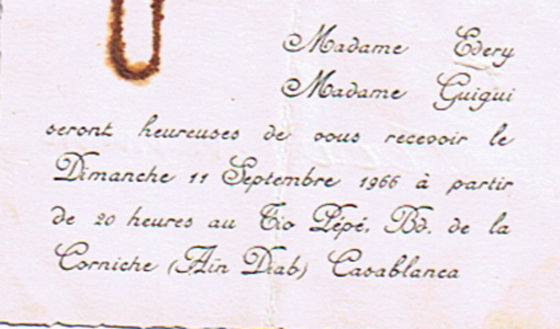 Madame Edery
Madame Guigui
seront heureuses de vous recevoir le
Dimanche 11 Septembre 1966 à partir
de 20 heures au Tio Pépé, Bd. de la
Corniche (Aïn Diab) Casablanca